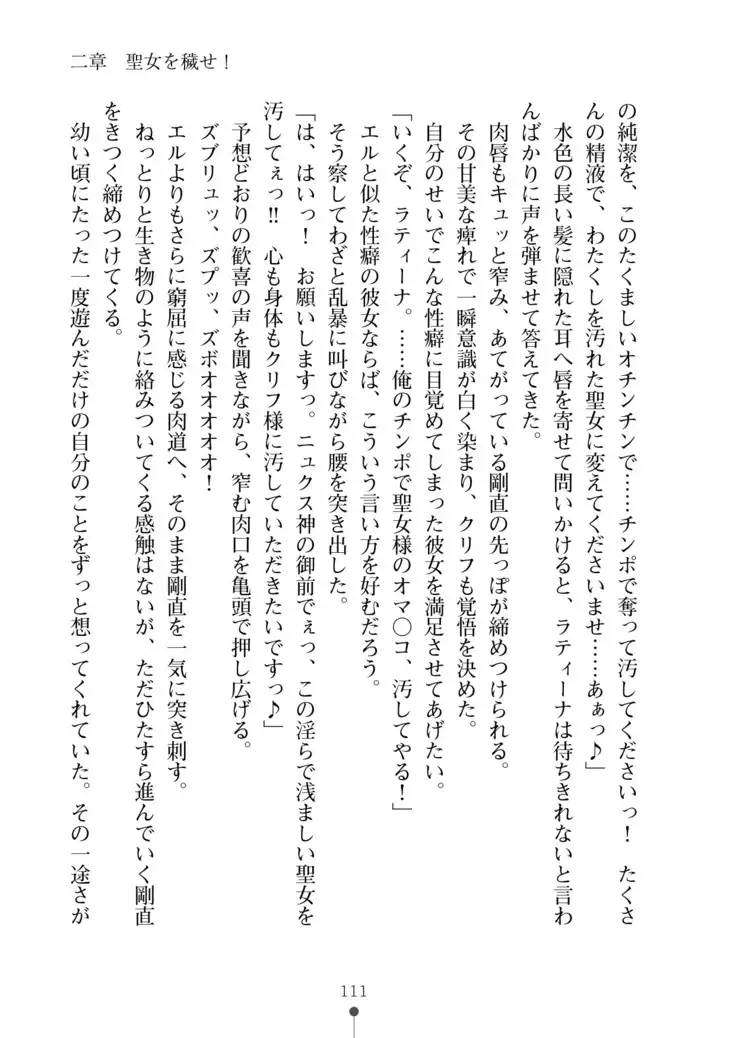 二章　聖女を穢せ！
の純潔を、このたくましいオチンチンで……チンポで奪って汚してくださいっ！　たくさ
んの精液で、わたくしを汚れた聖女に変えてくださいませ……あぁっ♪」
　水色の長い髪に隠れた耳へ唇を寄せて問いかけると、ラティーナは待ちきれないと言わ
んばかりに声を弾ませて答えてきた。
　肉唇もキュッと窄み、あてがっている剛直の先っぽが締めつけられる。
　その甘美な痺れで一瞬意識が白く染まり、クリフも覚悟を決めた。
　自分のせいでこんな性癖に目覚めてしまった彼女を満足させてあげたい。
「いくぞ、ラティーナ。……俺のチンポで聖女様のオマ〇コ、汚してやる！」
　エルと似た性癖の彼女ならば、こういう言い方を好むだろう。
　そう察してわざと乱暴に叫びながら腰を突き出した。
「は、はいっ！　お願いしますっ。ニュクス神の御前でぇっ、この淫らで浅ましい聖女を
汚してぇっ!!　心も身体もクリフ様に汚していただきたいですっ♪」
　予想どおりの歓喜の声を聞きながら、窄む肉口を亀頭で押し広げる。
　ズブリュッ、ズプッ、ズボオオオオオオ！
　エルよりもさらに窮屈に感じる肉道へ、そのまま剛直を一気に突き刺す。
　ねっとりと生き物のように絡みついてくる感触はないが、ただひたすら進んでいく剛直
をきつく締めつけてくる。
　幼い頃にたった一度遊んだだけの自分のことをずっと想ってくれていた。その一途さが
111